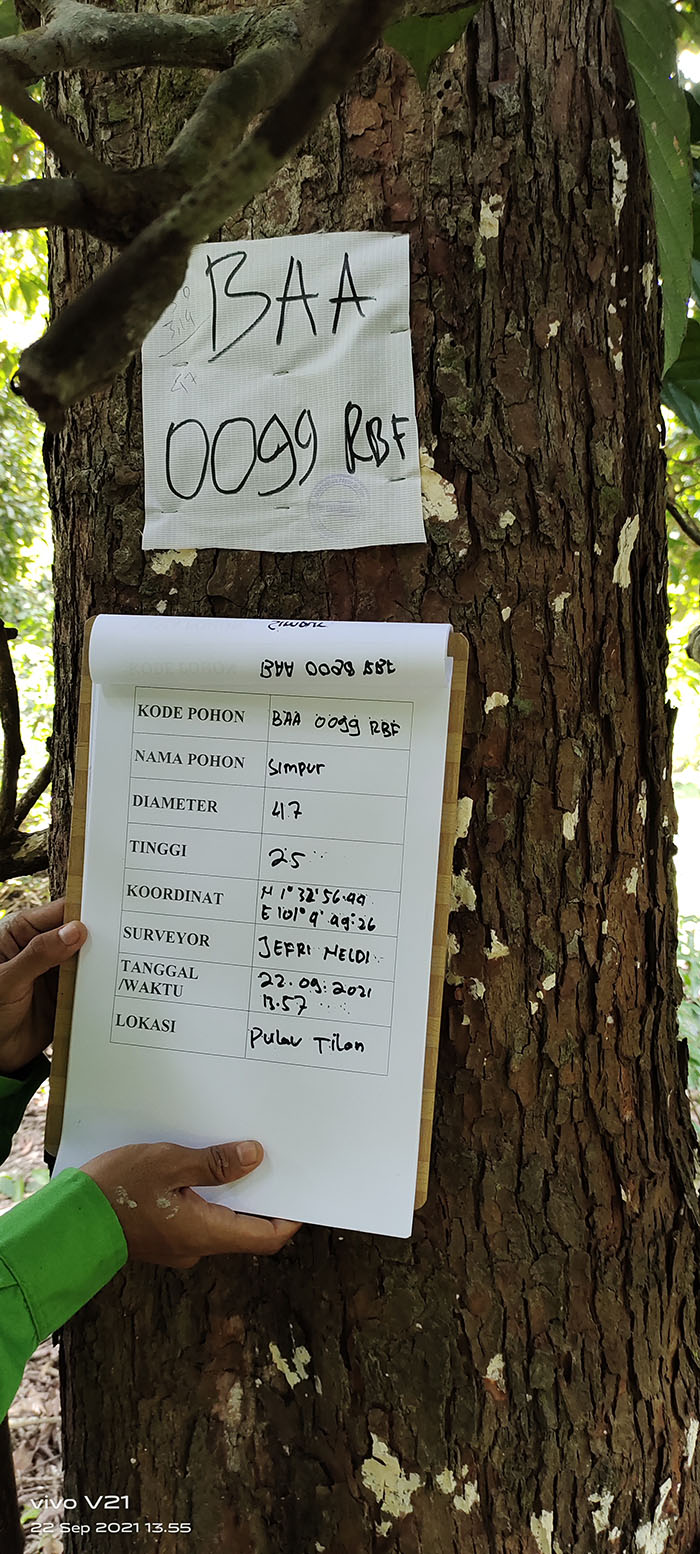 BAA
0099 RBF
KODE POHON BAA 0099 RBF
NAMA POHON Simpur
DIAMETER 47
TINGGI 25
KOORDINAT N 1° 32' 56.44
E 101° 4' 49:26
SURVEYOR JEFRI MELDI
TANGGAL
/WAKTU 22.09.2021
13.57
LOKASI Pulau Tilan
vivo V21
22 Sep 2021 13.55